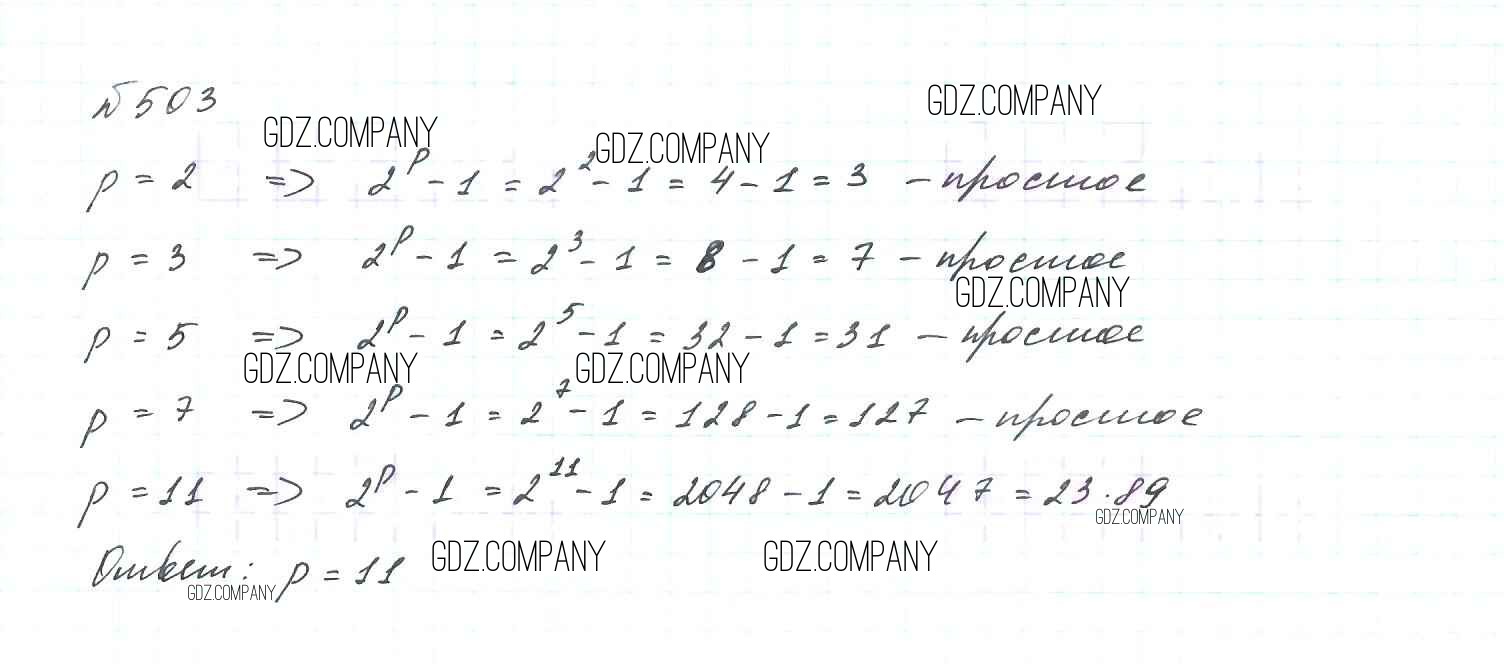 № 503
GDZ.COMPANY
GDZ.COMPANY
GDZ.COMPANY
p = 2 => 2^p - 1 = 2^2 - 1 = 4 - 1 = 3 - простое
p = 3 => 2^p - 1 = 2^3 - 1 = 8 - 1 = 7 - простое
GDZ.COMPANY
p = 5 => 2^p - 1 = 2^5 - 1 = 32 - 1 = 31 - простое
GDZ.COMPANY
GDZ.COMPANY
p = 7 => 2^p - 1 = 2^7 - 1 = 128 - 1 = 127 - простое
p = 11 => 2^p - 1 = 2^11 - 1 = 2048 - 1 = 2047 = 23 · 89
GDZ.COMPANY
GDZ.COMPANY
GDZ.COMPANY
Ответ: p = 11
GDZ.COMPANY